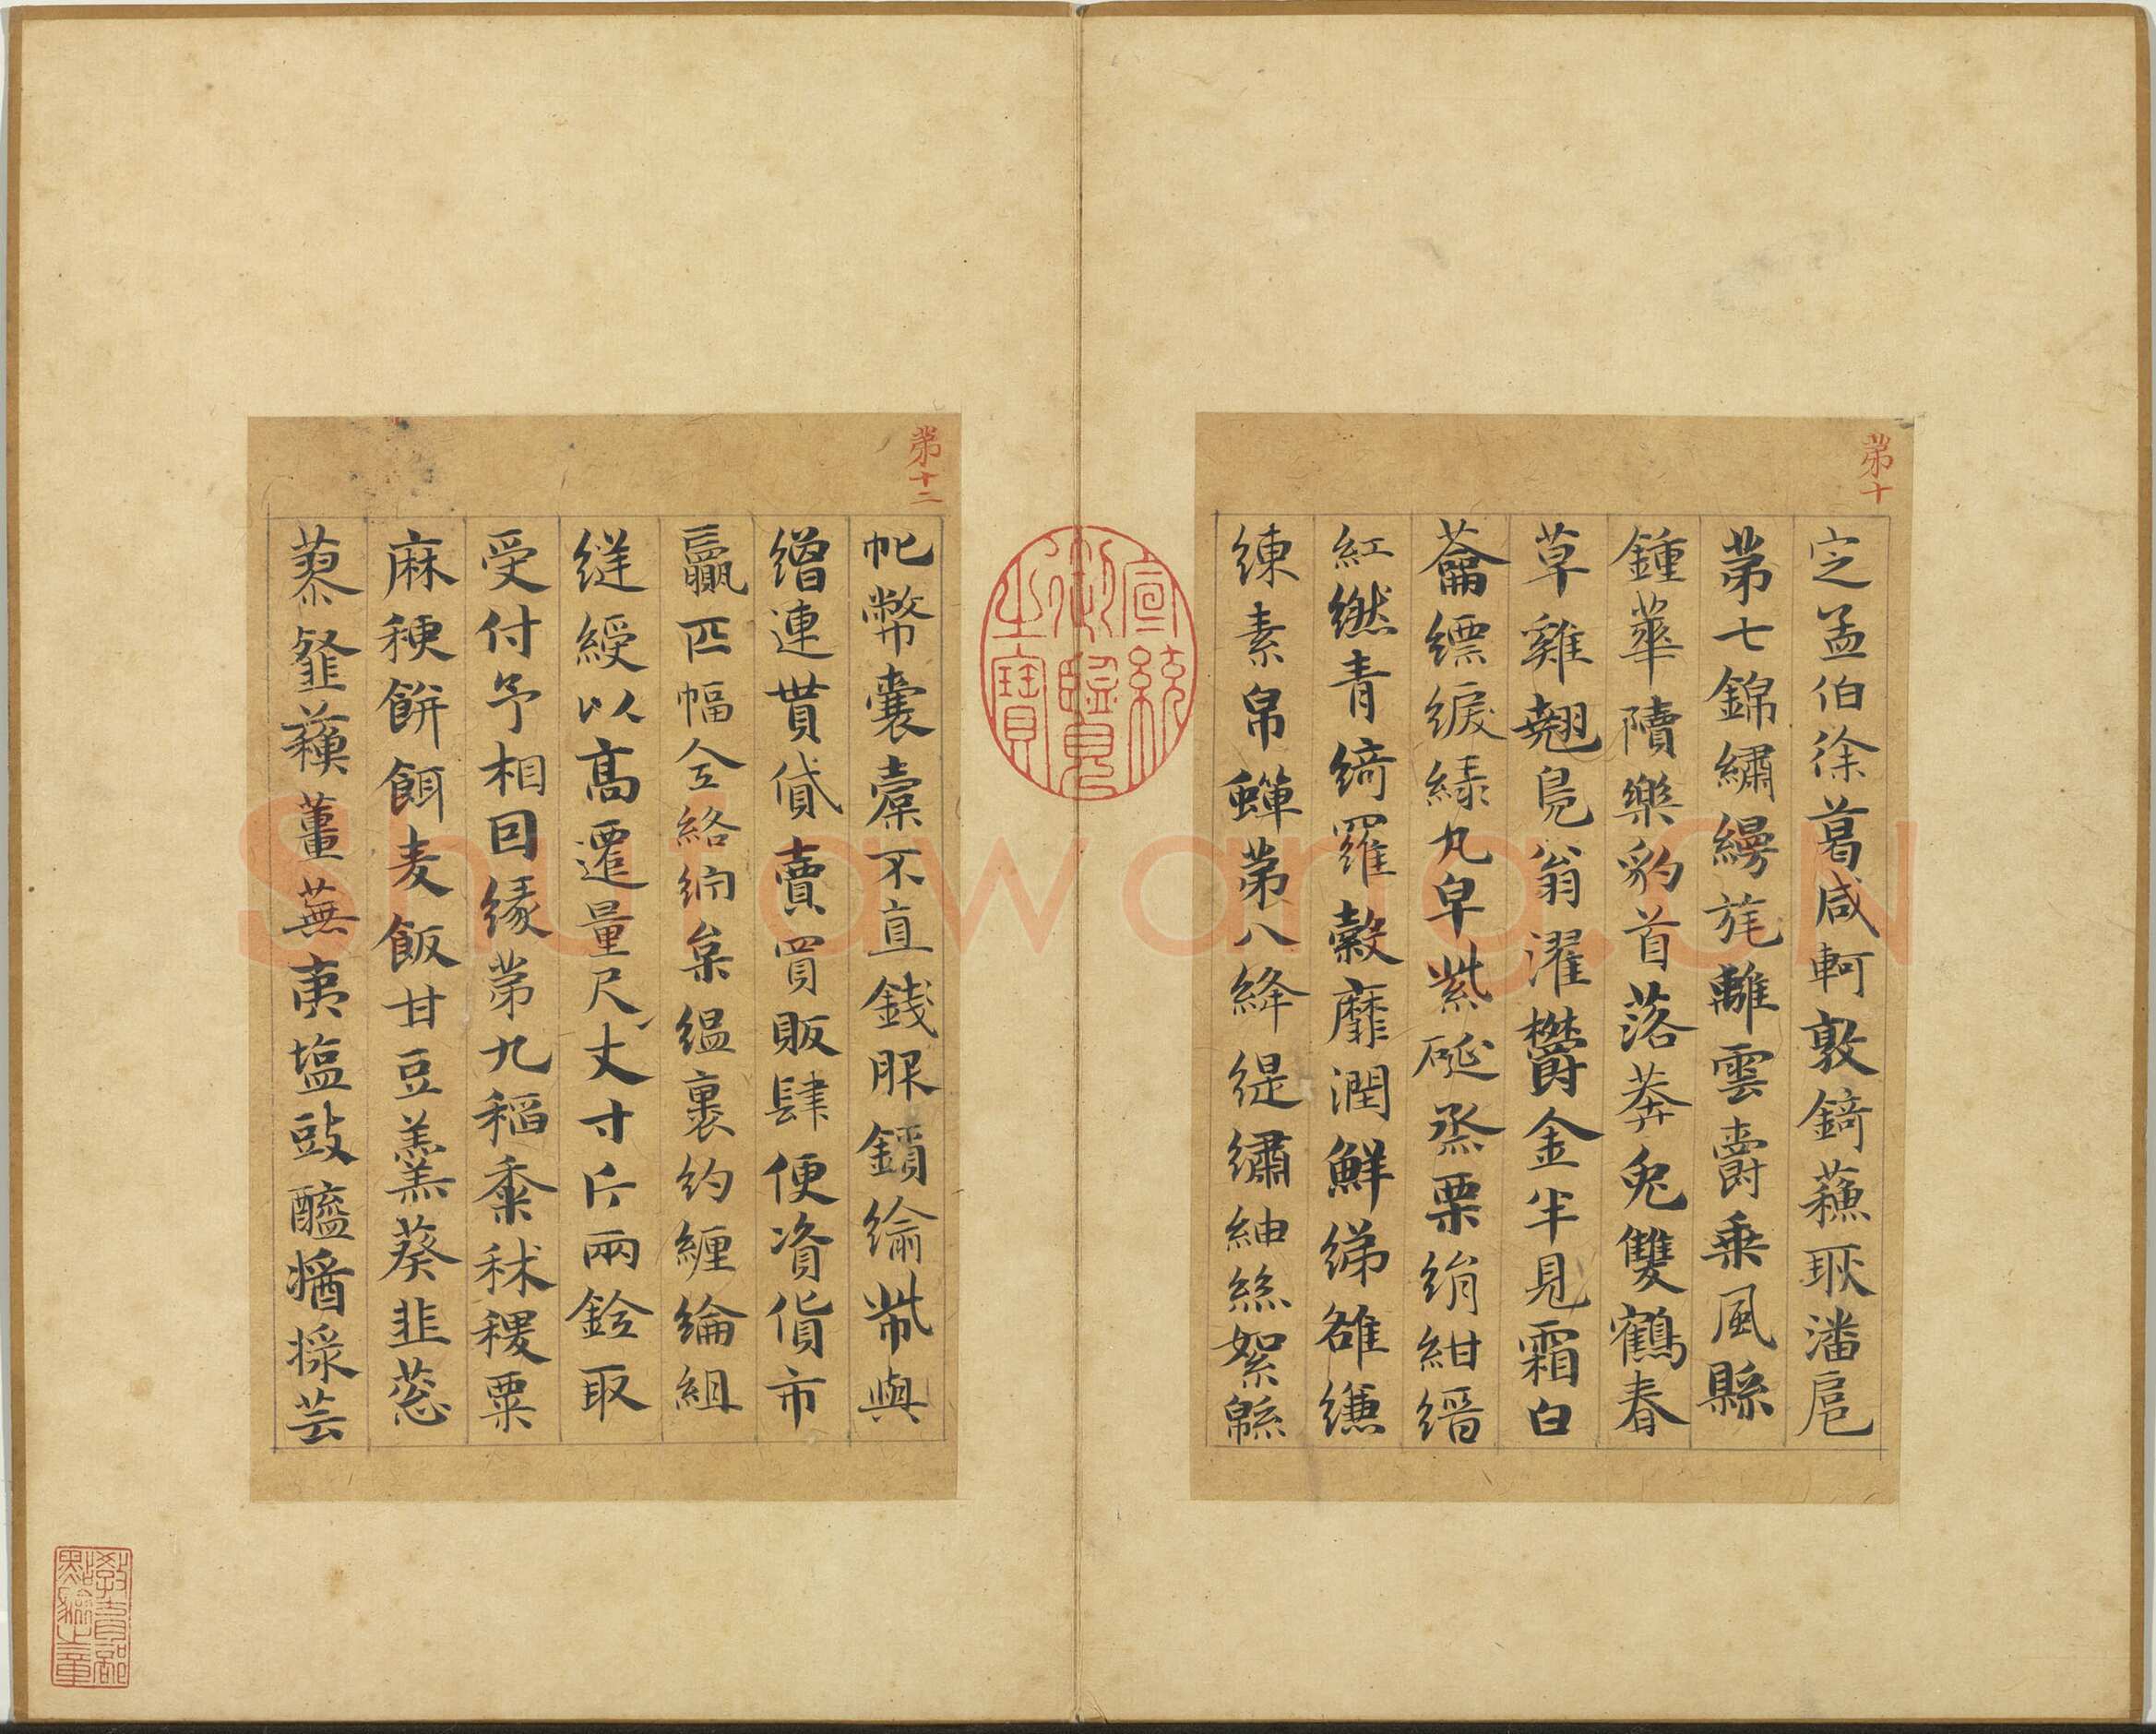 第十
定孟伯徐葛咸軻敦錡蘓耿潘扈
第七錦繡縵旄離雲爵乗風縣
鍾華隫樂豹首落莽兔雙鶴春
草雞翹鳬翁濯欝金半見霜白
蘥縹綟緑丸皁紫硟烝栗絹紺縉
紅繎青綺羅縠靡潤鮮綈雒縑
練素帛蟬第八絳緹繡紬絲絮緜
第十二
帊幣囊橐不直錢服鏆綸幣與
繒連貰貸賣買販肆便資貨市
贏匹幅全絡綌枲縕裹約纏綸組
縫綬以髙遷量尺丈寸斤兩銓取
受付予相因緣第九稻黍秫稷粟
麻稉餅餌麦飯甘豆羹葵韭葱
蓼韰蘇薑蕪荑塩豉醯醬採芸
宣統御覽之寶
教育部點驗之章
Shufawang.CN